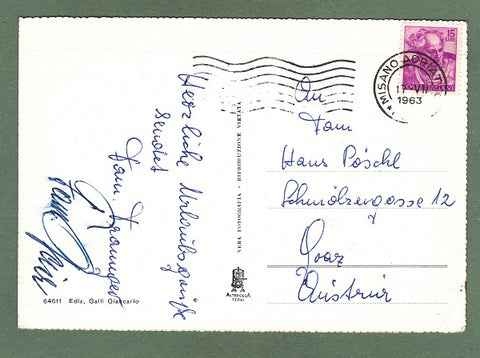 Herzliche Urlaubsgrüße
sendet
Fam.
Fam.
64611 Ediz. Galli Giancarlo
VERA FOTOGRAFIA - RIPRODUZIONE VIETATA
ALTEROCCA
TERNI
15
LIRE
MISANO ADRIATICO
17-VII
1963
An
Fam
Hans Pöschl
Schmölzergasse 12
Graz
Austria